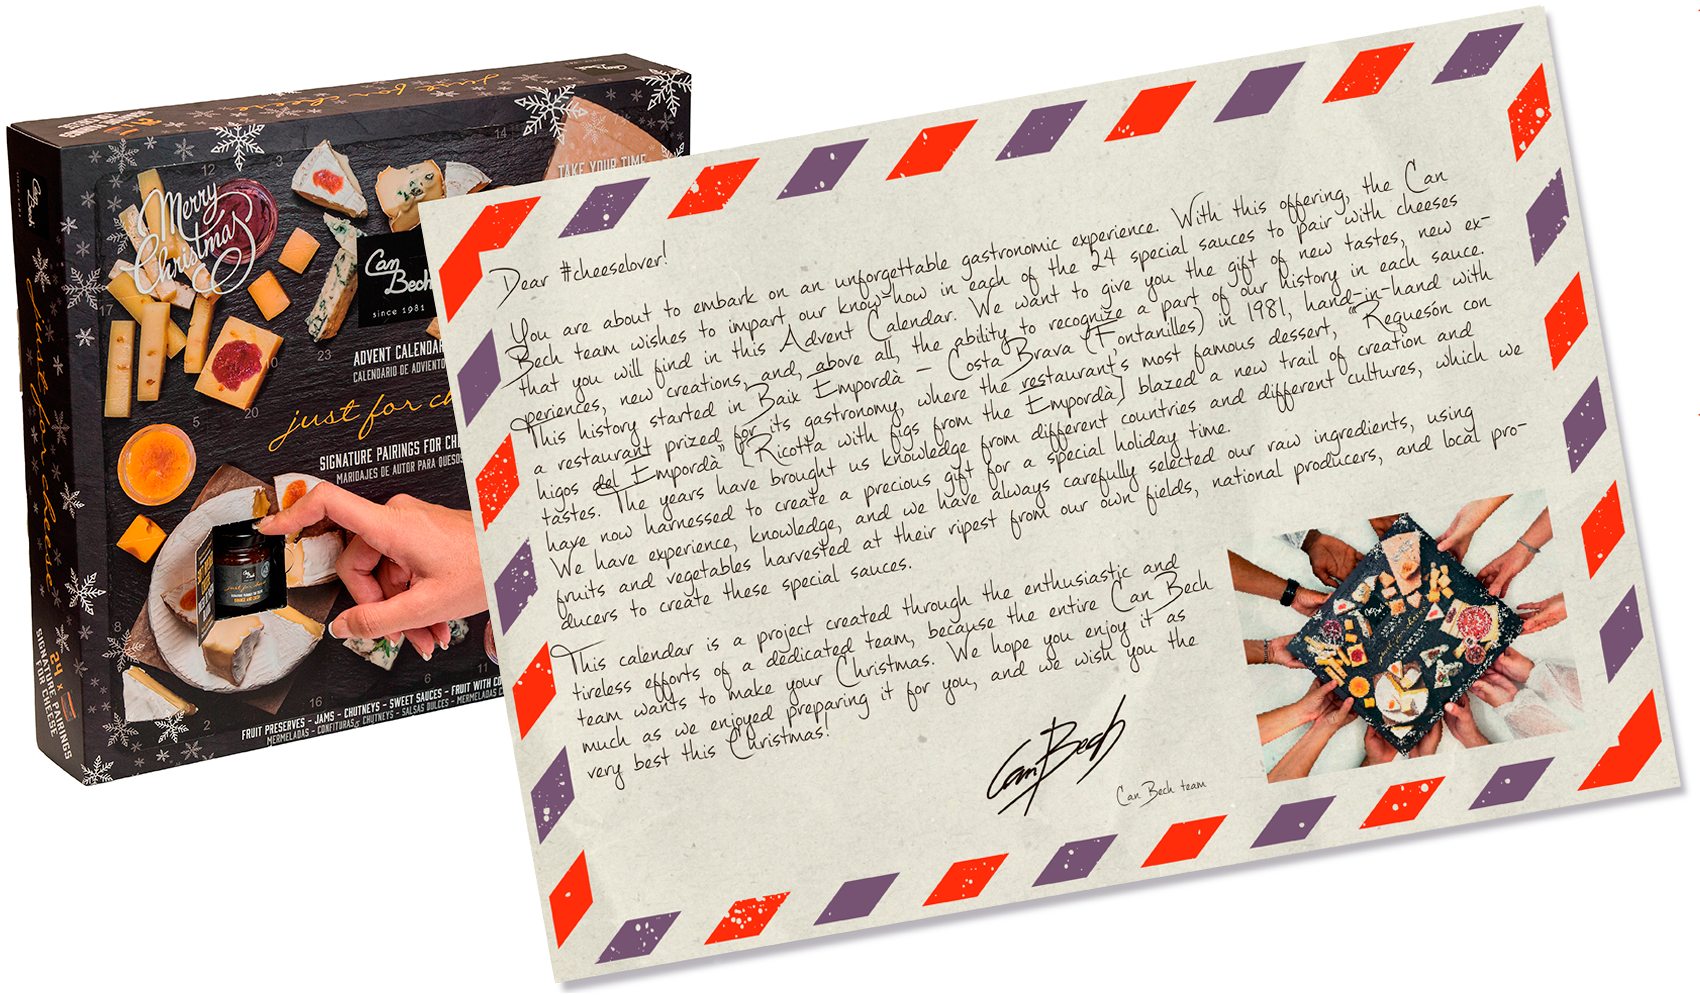 just for cheese
Can Bech
SINCE 1981
just for cheese
24 x
SIGNATURE PAIRINGS
FOR CHEESE
Merry
Christmas
TAKE YOUR TIME
12
3
14
17
Can
Bech
since 1981
23
10
ADVENT CALENDAR
CALENDARIO DE ADVIENTO
5
20
just for ch
SIGNATURE PAIRINGS FOR CHE
MARIDAJES DE AUTOR PARA QUESOS
8
11
6
16
2
FRUIT PRESERVES - JAMS - CHUTNEYS - SWEET SAUCES - FRUIT WITH CO
MERMELADAS - CONFITURAS - CHUTNEYS - SALSAS DULCES - MERMELADAS C
Dear #cheeselover!
You are about to embark on an unforgettable gastronomic experience. With this offering, the Can
Bech team wishes to impart our know-how in each of the 24 special sauces to pair with cheeses
that you will find in this Advent Calendar. We want to give you the gift of new tastes, new ex-
periences, new creations, and, above all, the ability to recognize a part of our history in each sauce.
This history started in Baix Empordà - Costa Brava (Fontanilles) in 1981, hand-in-hand with
a restaurant prized for its gastronomy, where the restaurant's most famous dessert, "Requesón con
higos del Empordà" [Ricotta with figs from the Empordà] blazed a new trail of creation and
tastes. The years have brought us knowledge from different countries and different cultures, which we
have now harnessed to create a precious gift for a special holiday time.
We have experience, knowledge, and we have always carefully selected our raw ingredients, using
fruits and vegetables harvested at their ripest from our own fields, national producers, and local pro-
ducers to create these special sauces.
This calendar is a project created through the enthusiastic and
tireless efforts of a dedicated team, because the entire Can Bech
team wants to make your Christmas. We hope you enjoy it as
much as we enjoyed preparing it for you, and we wish you the
very best this Christmas!
Can Bech
Can Bech team